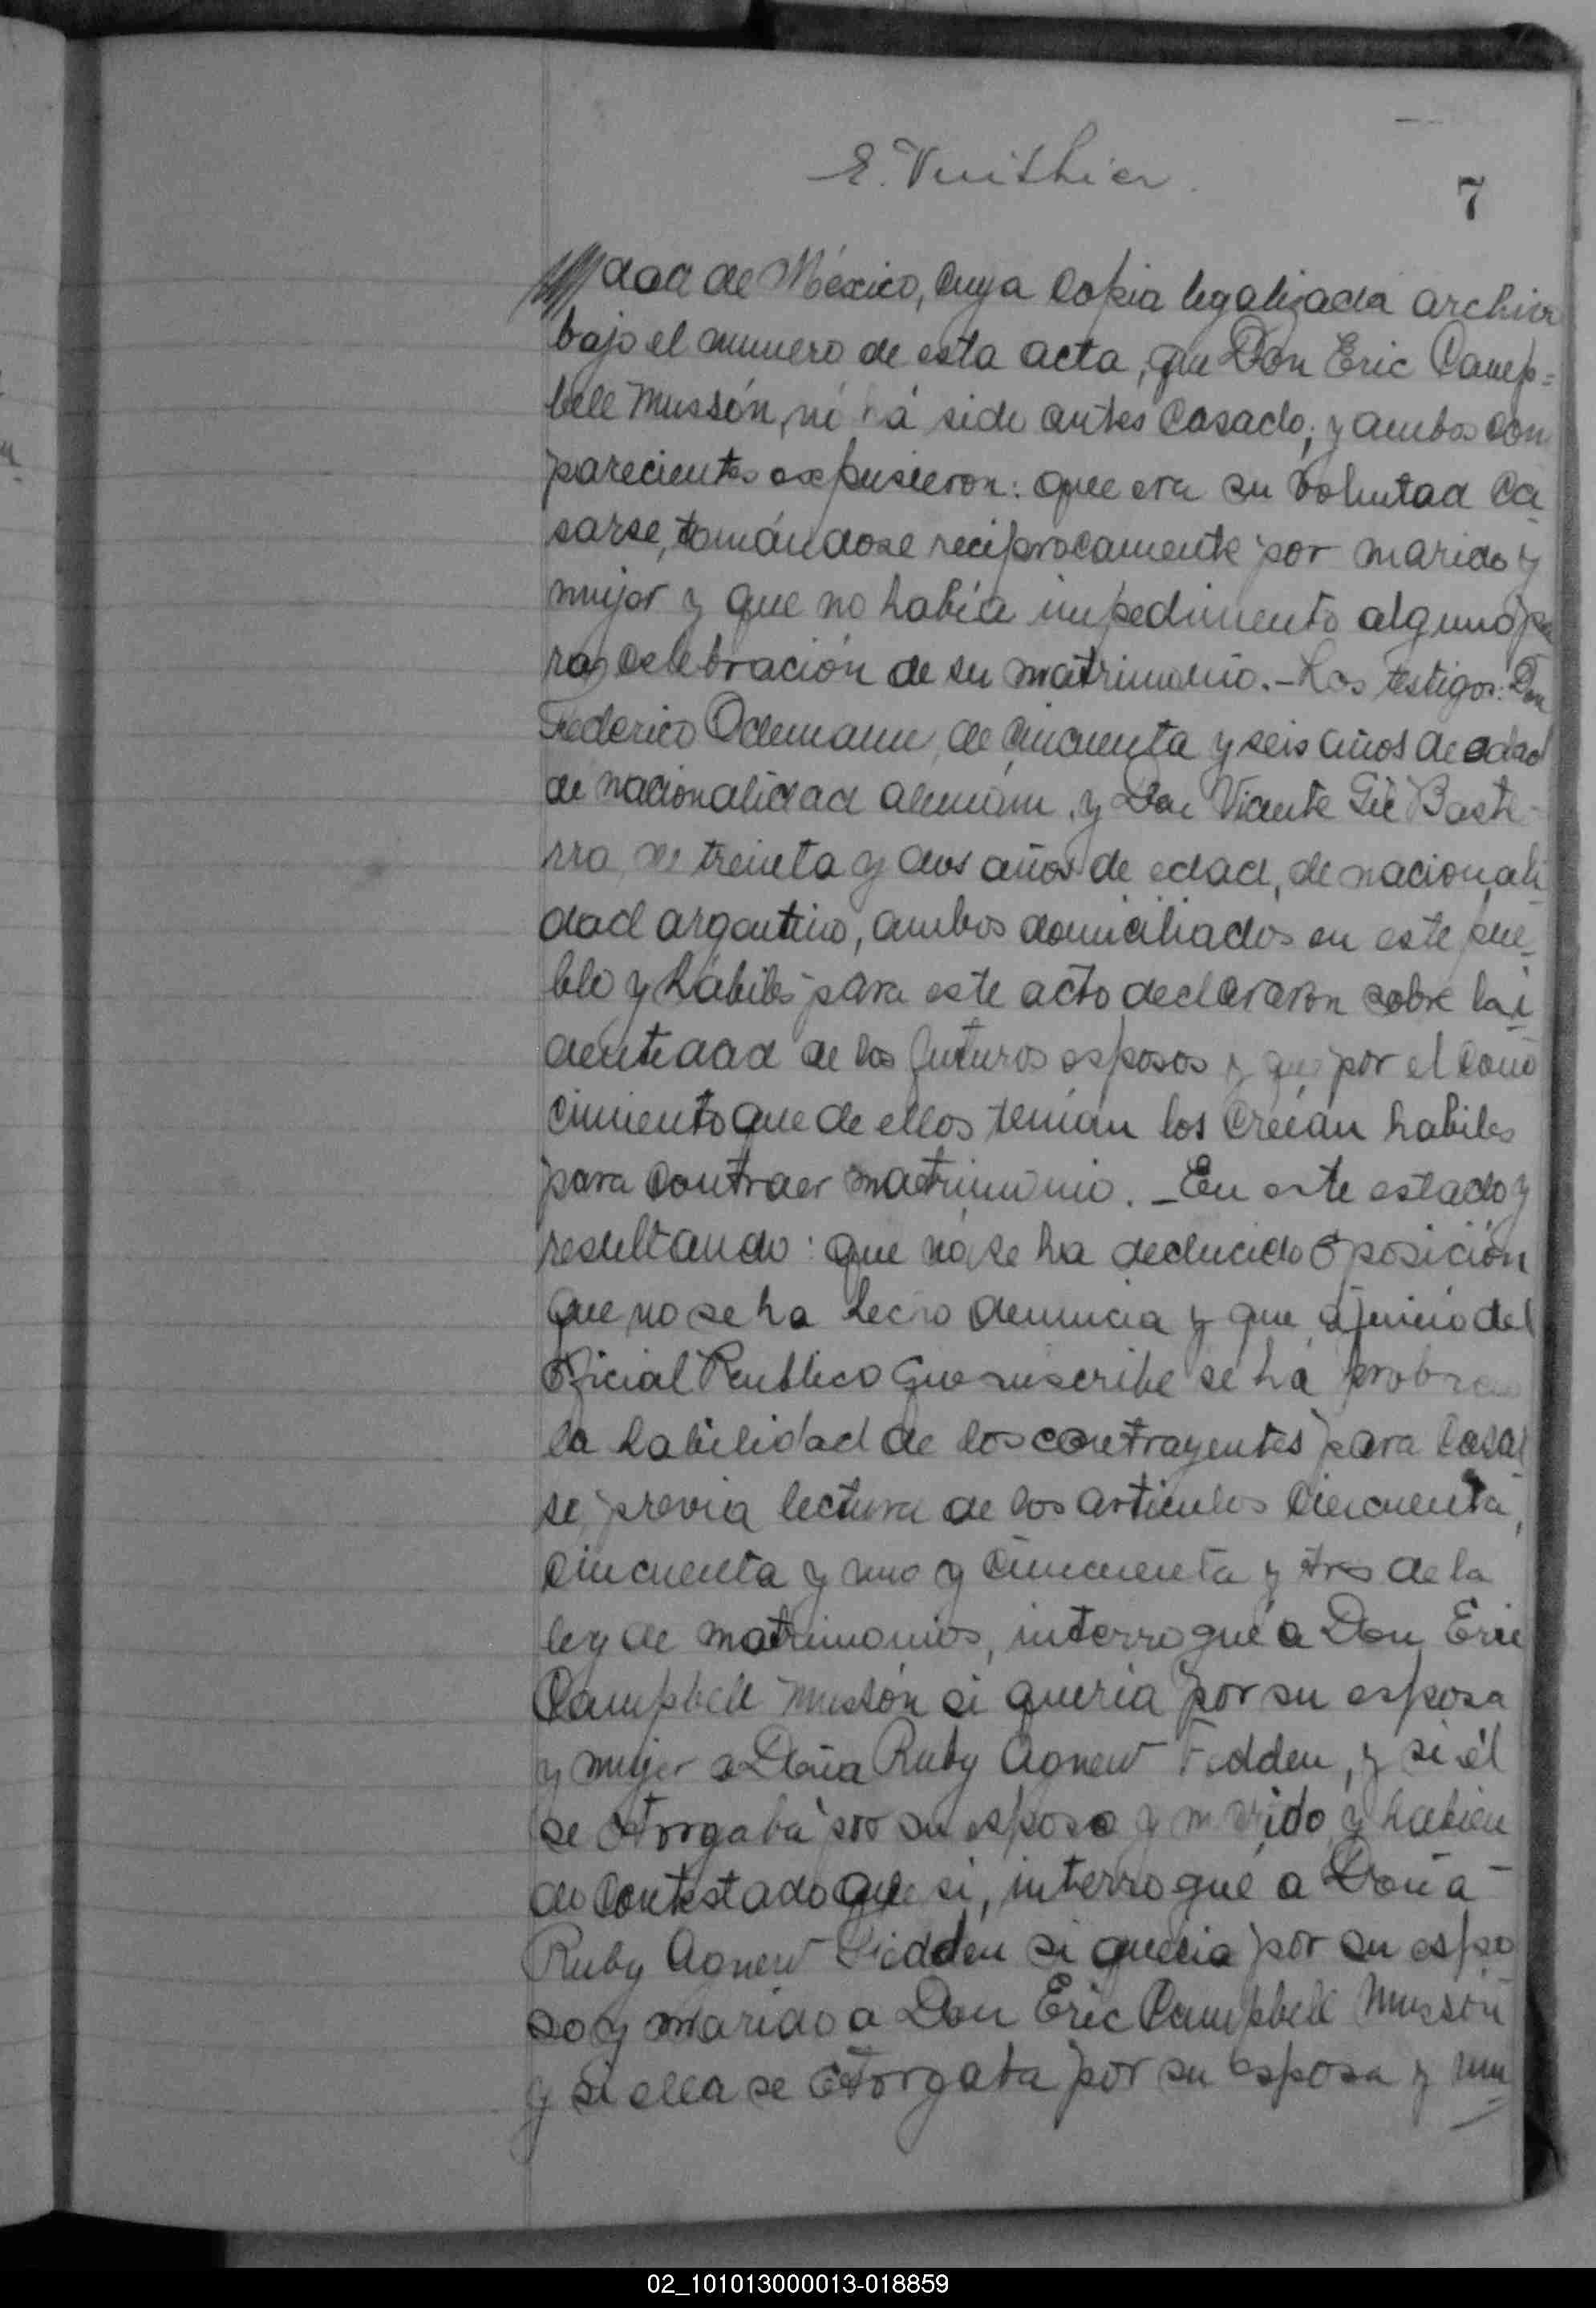 E. Vuithier.
7
dad de México, cuya copia legalizada archivo
bajo el numero de esta acta, que Don Eric Camp=
bell Mussón, ni há sido antes casado; y ambos com
parecientes expusieron: que era su voluntad ca
sarse, tomándose reciprocamente por marido y
mujer y que no había impedimento alguno pa
ra celebración de su matrimonio.- Los testigos: Don
Federico Odemann, de cincuenta y seis años de edad
de nacionalidad alemán, y Don Vicente Gil Baste-
rra, de treinta y dos años de edad, de nacionali
dad argentino, ambos domiciliados en este pue_
blo y hábiles para este acto declararon sobre la i
dentidad de los futuros esposos y que por el cono
cimiento que de ellos tenían los creían habiles
para contraer matrimonio. _ En este estado y
resultando: que no se ha deducido oposición
que no se ha hecho denuncia y que a juicio del
Oficial Publico que suscribe se há probado
la habilidad de los contrayentes para casar
se, previa lectura de los articulos cincuenta,
cincuenta y uno y cincuenta y tres de la
ley de matrimonios, interrogué a Don Eric
Campbell Mussón si quería por su esposa
y mujer a Doña Ruby Agnew Fedden, y si él
se otorgaba por su esposo y marido y habien
do contestado que si, interrogué a Doña
Ruby Agnew Fedden si queria por su espo
so y marido a Don Eric Campbell Mussón
y si ella se otorgaba por su esposa y mu
02_101013000013-018859